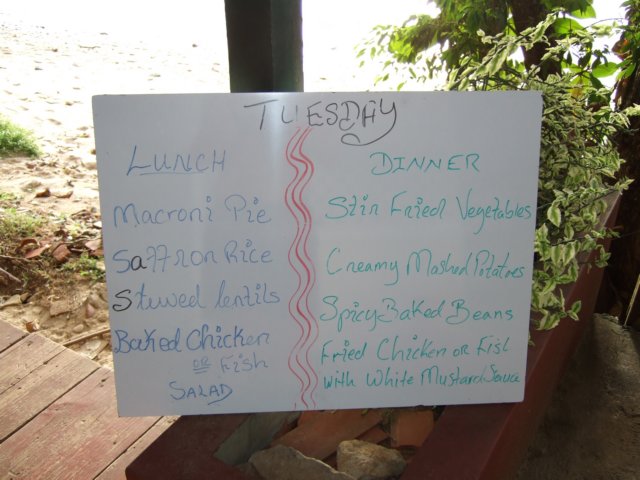 TUESDAY
LUNCH
Macroni Pie
Saffron Rice
Stuwed lentils
Baked Chicken
OR Fish
SALAD
DINNER
Stir Fried Vegetables
Creamy Mashed Potatoes
Spicy Baked Beans
Fried Chicken OR Fish
with White Mustard Sauce